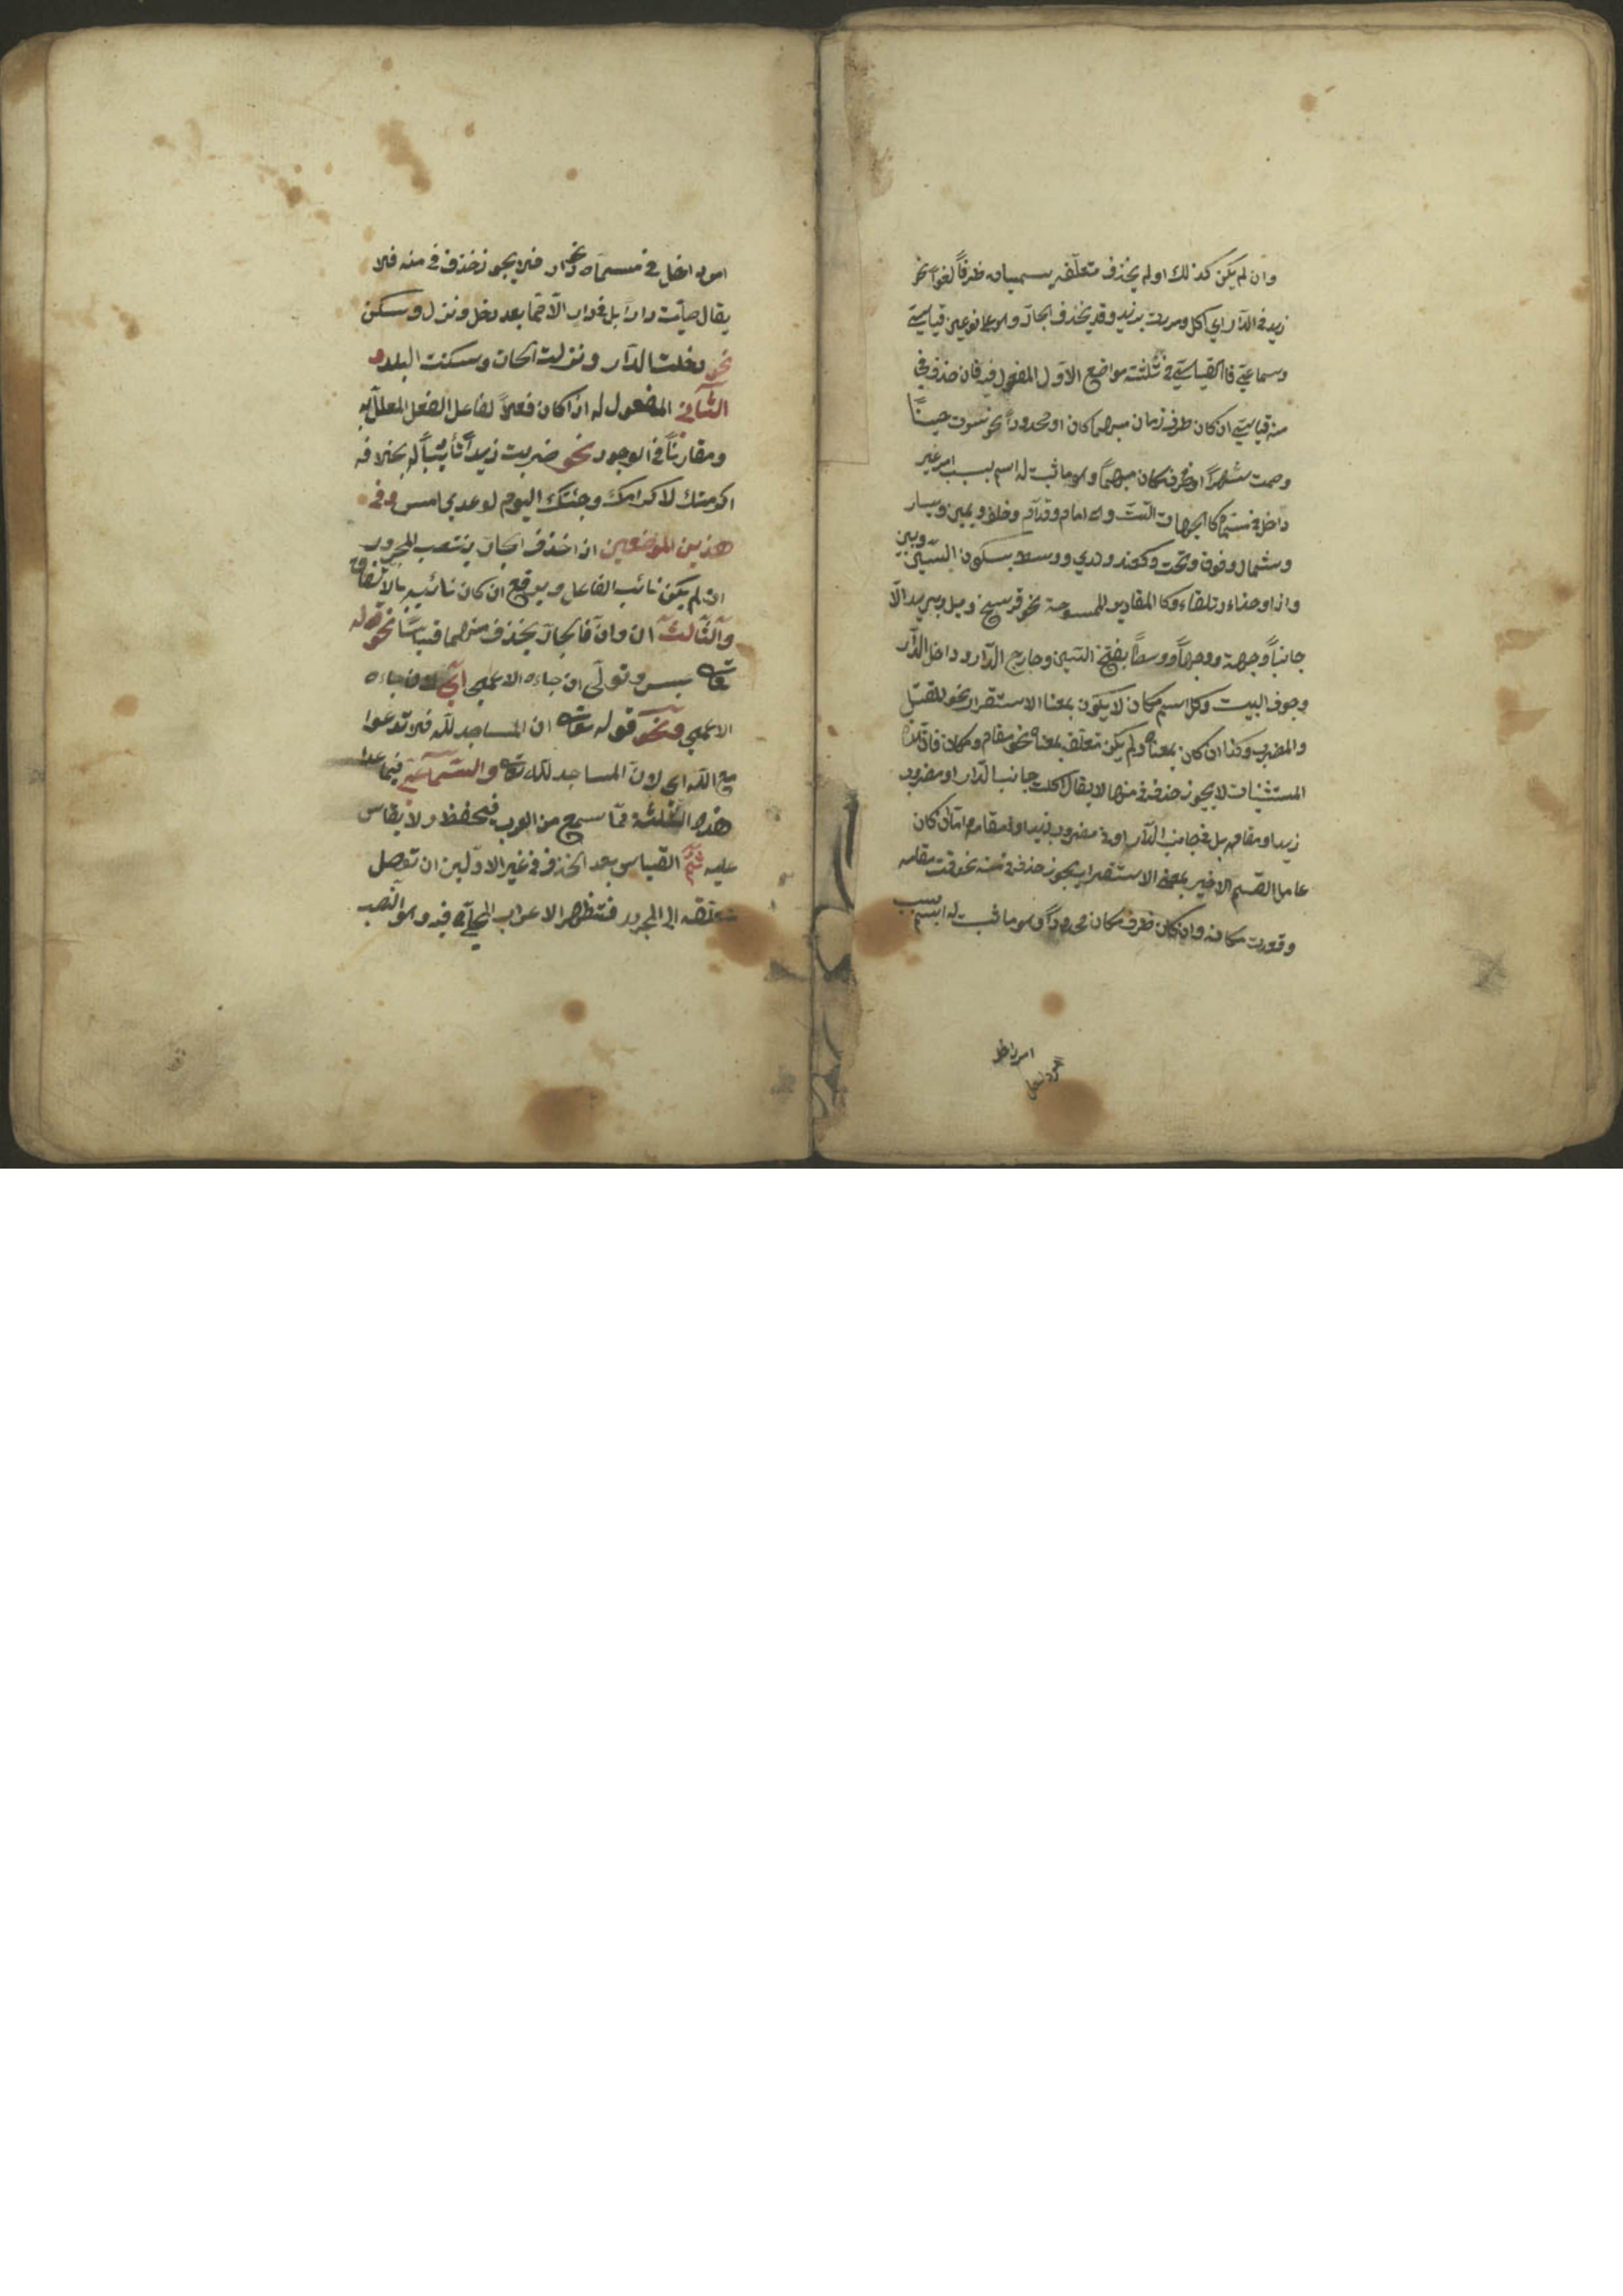 وان لم يكن كذلك او لم يحذف متعلقه يسميان ظرفا لغوا نحو
زيد في الدار اي اكل ومررت بزيد وقد يحذف الجار وهو على نوعين قياسي
وسماعي فالقياسي في ثلثة مواضع الاول المفعول فيه فان حذف في
منه قياسي ان كان ظرف زمان مبهما كان او محدودا نحو سرت حينا
وصمت شهرا او ظرف مكان مبهما وهو ما ثبت له اسم بسبب امر غير
داخل في مسماه كالجهات الست وهي امام وقدام وخلف ويمين ويسار
وشمال وفوق وتحت وكعند ولدي ووسط بسكون السين وبين
وازاء وحذاء وتلقاء وكالمقادير الممسوحة نحو فرسخ وميل وبريد الا
جانبا وجهة ووجها ووسطا بفتح السين وخارج الدار وداخل الدار
وجوف البيت وكل اسم مكان لا يكون بمعنا الاستقرار نحو المقتل
والمضرب وكذا ان كان بمعناه ولم يكن متعلقه بمعناه نحو مقام ومكان فان هذه
المستثنيات لا يجوز حذف في منها لا يقال اكلت جانب الدار او مضرب
زيد او مقامه بل في جانب الدار او في مضرب زيد او في مقامه اما ان كان
عامل القسم الاخير بمعنى الاستقرار يجوز حذف في منه نحو قمت مقامه
وقعدت مكانه وان كان ظرف مكان محدودا وهو ما ثبت له اسم بسبب
امر داخل
امر داخل في مسماه نحو دار فلا يجوز حذف في منه فلا
يقال صليت دارا بل في دار الا مما بعد دخل ونزل وسكن
نحو دخلت الدار ونزلت الخان وسكنت البلد و
الثاني المفعول له ان كان فعلا لفاعل الفعل المعلل به
ومقارنا في الوجود نحو ضربت زيدا تأديبا له بخلاف
اكرمتك لاكرامك وجئتك اليوم لوعدي امس وفي
هذين الموضعين ان حذف الجار ينتصب المجرور
ان لم يكن نائب الفاعل ويرفع ان كان نائبه بالاتفاق
والثالث ان وان فالجار يحذف منهما قياسا نحو قوله
تعالى عبس وتولى ان جاءه الاعمى اي لان جاءه
الاعمى ونحو قوله تعالى ان المساجد لله فلا تدعوا
مع الله اي لان المساجد لله تعالى والسماعي فيما عدا
هذه الثلثة مما سمع من العرب فيحفظ ولا يقاس
عليه ثم القياس بعد الحذف في غير الاولين ان توصل
متعلقه الى المجرور فتظهر الاعراب المحلي فيه وهو النصب